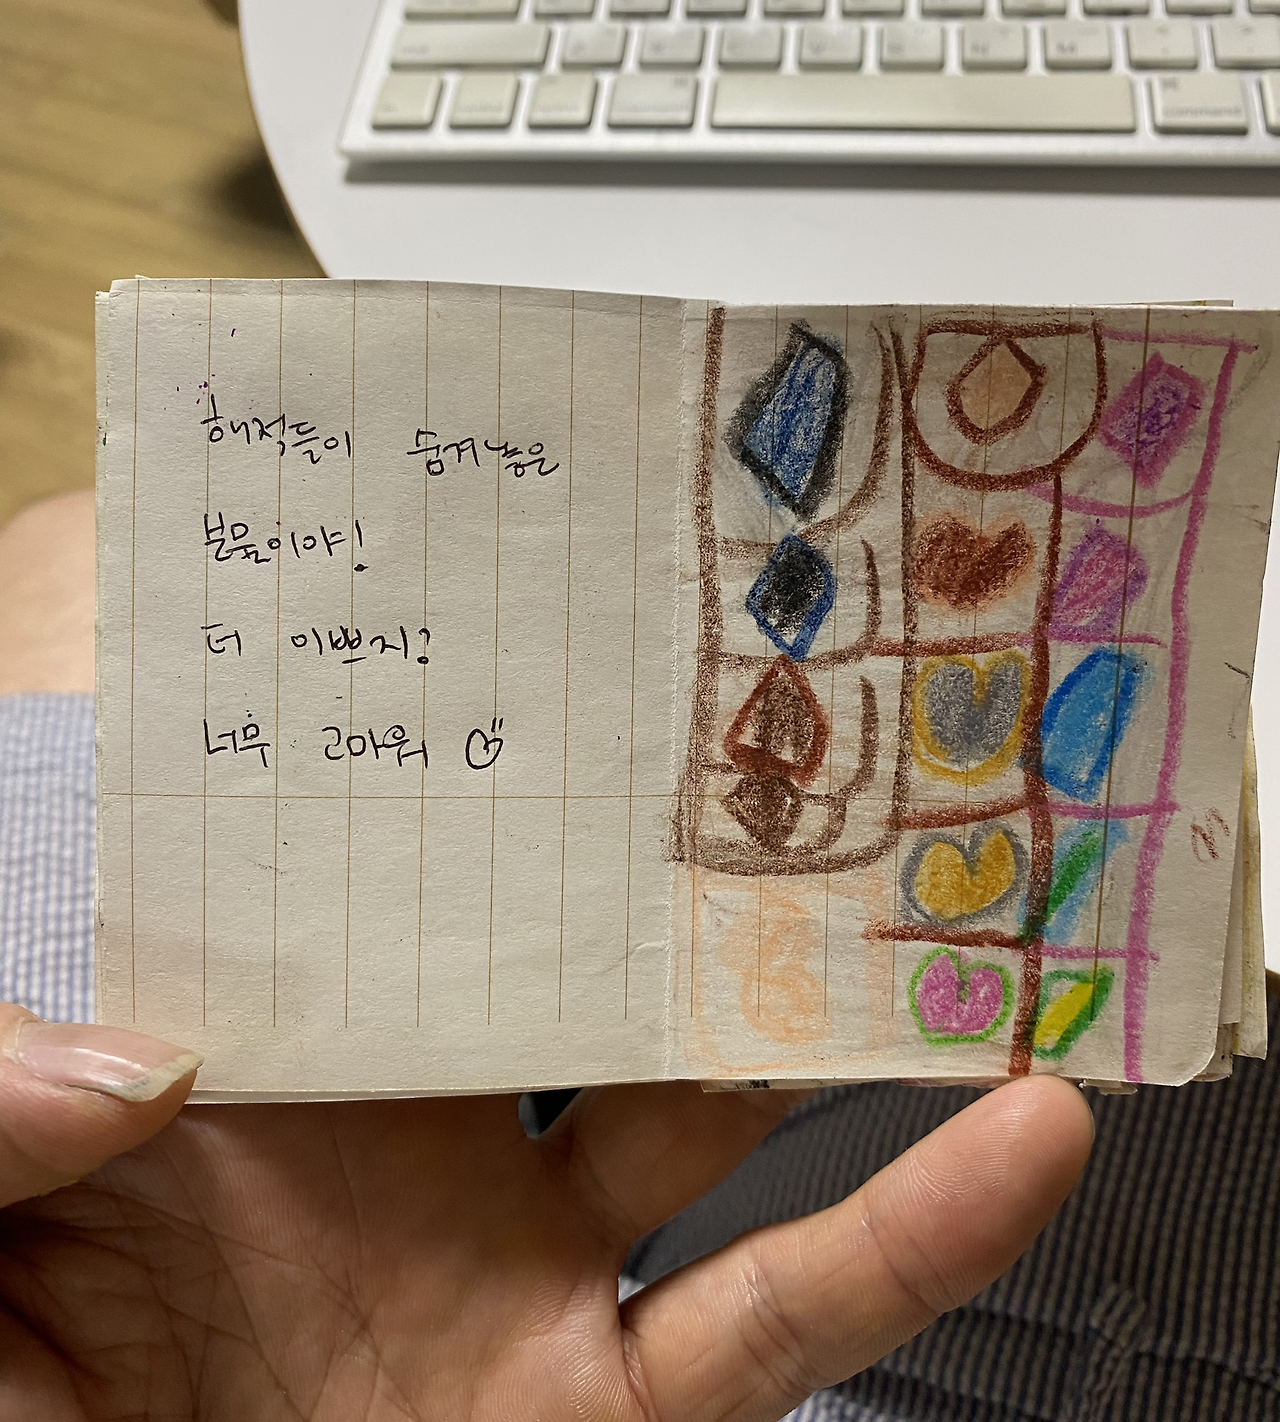 해적들이 숨겨놓은
보물이야!
더 이쁘지?
너무 고마워
command